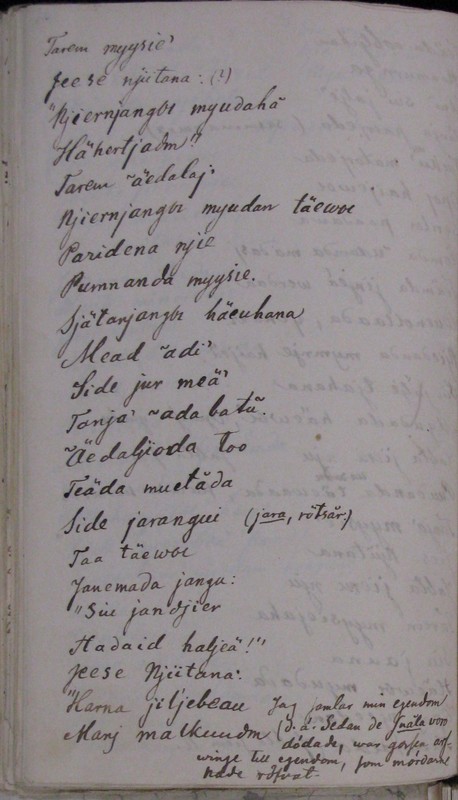 Tarem myysie'
Jeese njiitana: (!)
"Njiernjangbɛ myudahă
Hähertjadm"?
Tarem ~äedalaj'
Njiernjangbɛ myudan täewbɛ
Paridena njie
Pumnanda myysie.
Sjätanjangbɛ häeuhana
Mead ~adi'
Side jur meä'
Tanja' ~adabată.
~Äedaljioda too
Teäda muetăda
Side jarangui (jara, rötsär.)
Taa täewbɛ
Janemada jangu:
"Siu jandjier
Hadaid haljeä!"
Jeese Njiitana:
"Harna jiljebeau Jag samlar min egendom
Manj malkundm (d. ä. Sedan de
dödade, war
till egendom, som mördarne
hade röfvat.